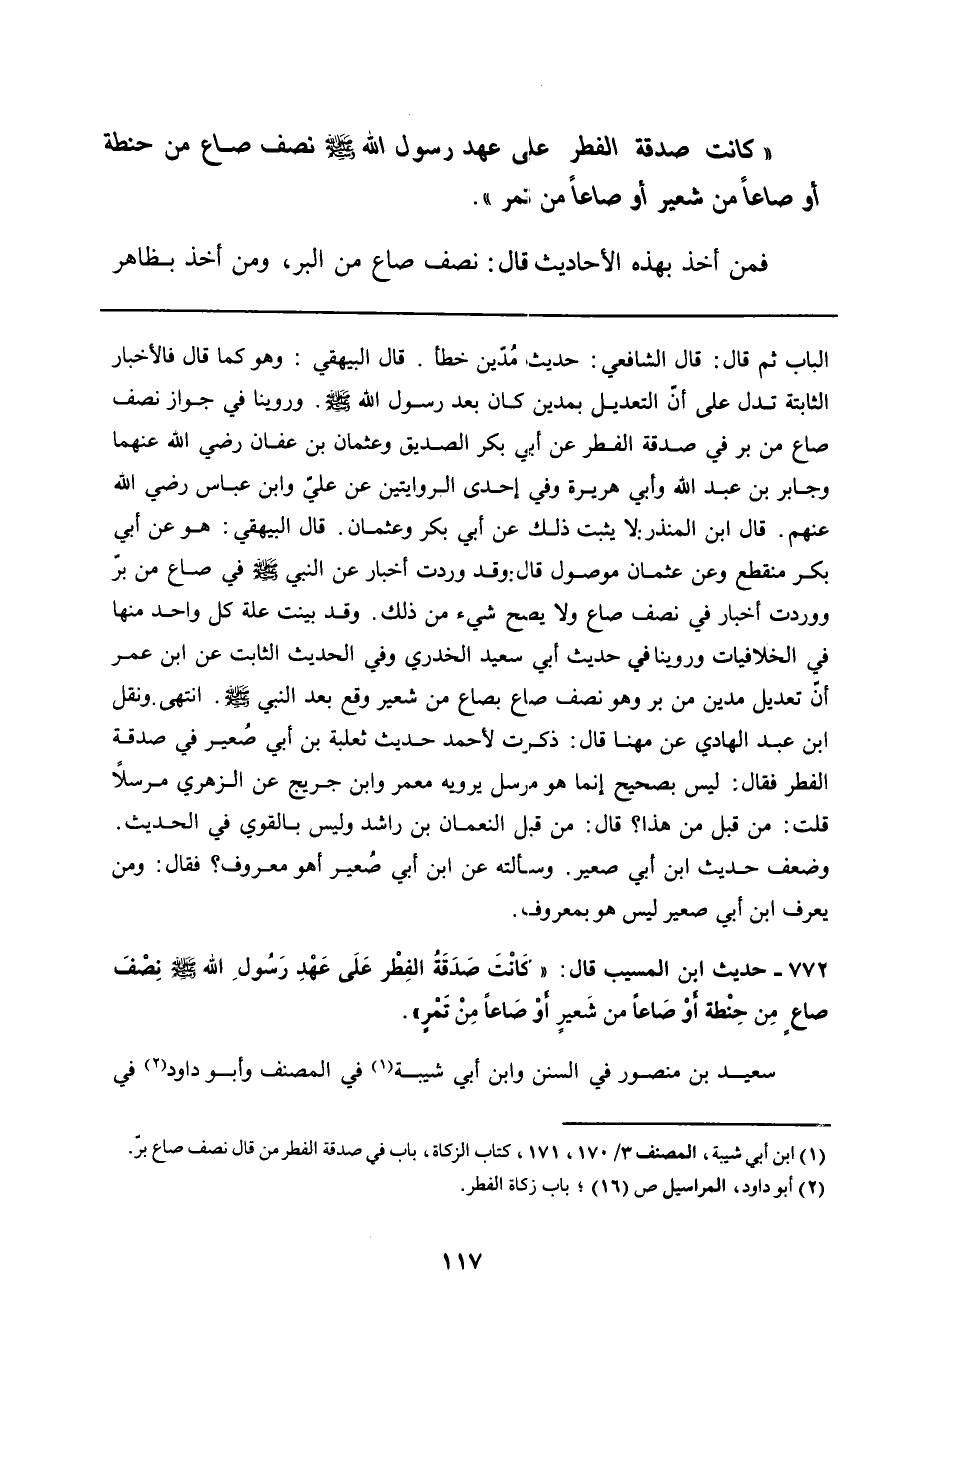 « كانت صدقة الفطر على عهد رسول الله ﷺ نصف صاع من حنطة
أو صاعاً من شعير أو صاعاً من تمر ».
فمن أخذ بهذه الأحاديث قال: نصف صاع من البر، ومن أخذ بظاهر
الباب ثم قال: قال الشافعي: حديث مُدّين خطأ . قال البيهقي : وهو كما قال فالأخبار
الثابتة تدل على أنّ التعديل بمدين كان بعد رسول الله ﷺ. وروينا في جواز نصف
صاع من بر في صدقة الفطر عن أبي بكر الصديق وعثمان بن عفان رضي الله عنهما
وجابر بن عبد الله وأبي هريرة وفي إحدى الروايتين عن عليّ وابن عباس رضي الله
عنهم. قال ابن المنذر: لا يثبت ذلك عن أبي بكر وعثمان. قال البيهقي: هو عن أبي
بكر منقطع وعن عثمان موصول قال: وقد وردت أخبار عن النبي ﷺ في صاع من برّ
ووردت أخبار في نصف صاع ولا يصح شيء من ذلك. وقد بينت علة كل واحد منها
في الخلافيات وروينا في حديث أبي سعيد الخدري وفي الحديث الثابت عن ابن عمر
أنّ تعديل مدين من بر وهو نصف صاع بصاع من شعير وقع بعد النبي ﷺ. انتهى. ونقل
ابن عبد الهادي عن مهنا قال: ذكرت لأحمد حديث ثعلبة بن أبي صُعير في صدقة
الفطر فقال: ليس بصحيح إنما هو مرسل يرويه معمر وابن جريج عن الزهري مرسلاً
قلت: من قبل من هذا؟ قال: من قبل النعمان بن راشد وليس بالقوي في الحديث.
وضعف حديث ابن أبي صعير. وسألته عن ابن أبي صُعير أهو معروف؟ فقال: ومن
يعرف ابن أبي صعير ليس هو بمعروف.
٧٧٢ - حديث ابن المسيب قال: « كَانْتَ صَدَقَةُ الفِطْر عَلَى عَهْدِ رَسُول الله ﷺ نِصْفَ
صاعٍ مِن حِنْطة أَوْ صَاعاً من شَعيرٍ أَوْ صَاعاً مِنْ تَمْرٍ».
سعيد بن منصور في السنن وابن أبي شيبة(١) في المصنف وأبو داود(٢) في
(١) ابن أبي شيبة، المصنف ٣/ ١٧٠، ١٧١، كتاب الزكاة، باب في صدقة الفطر من قال نصف صاع برّ.
(٢) أبو داود، المراسيل ص (١٦) ؛ باب زكاة الفطر.
١١٧